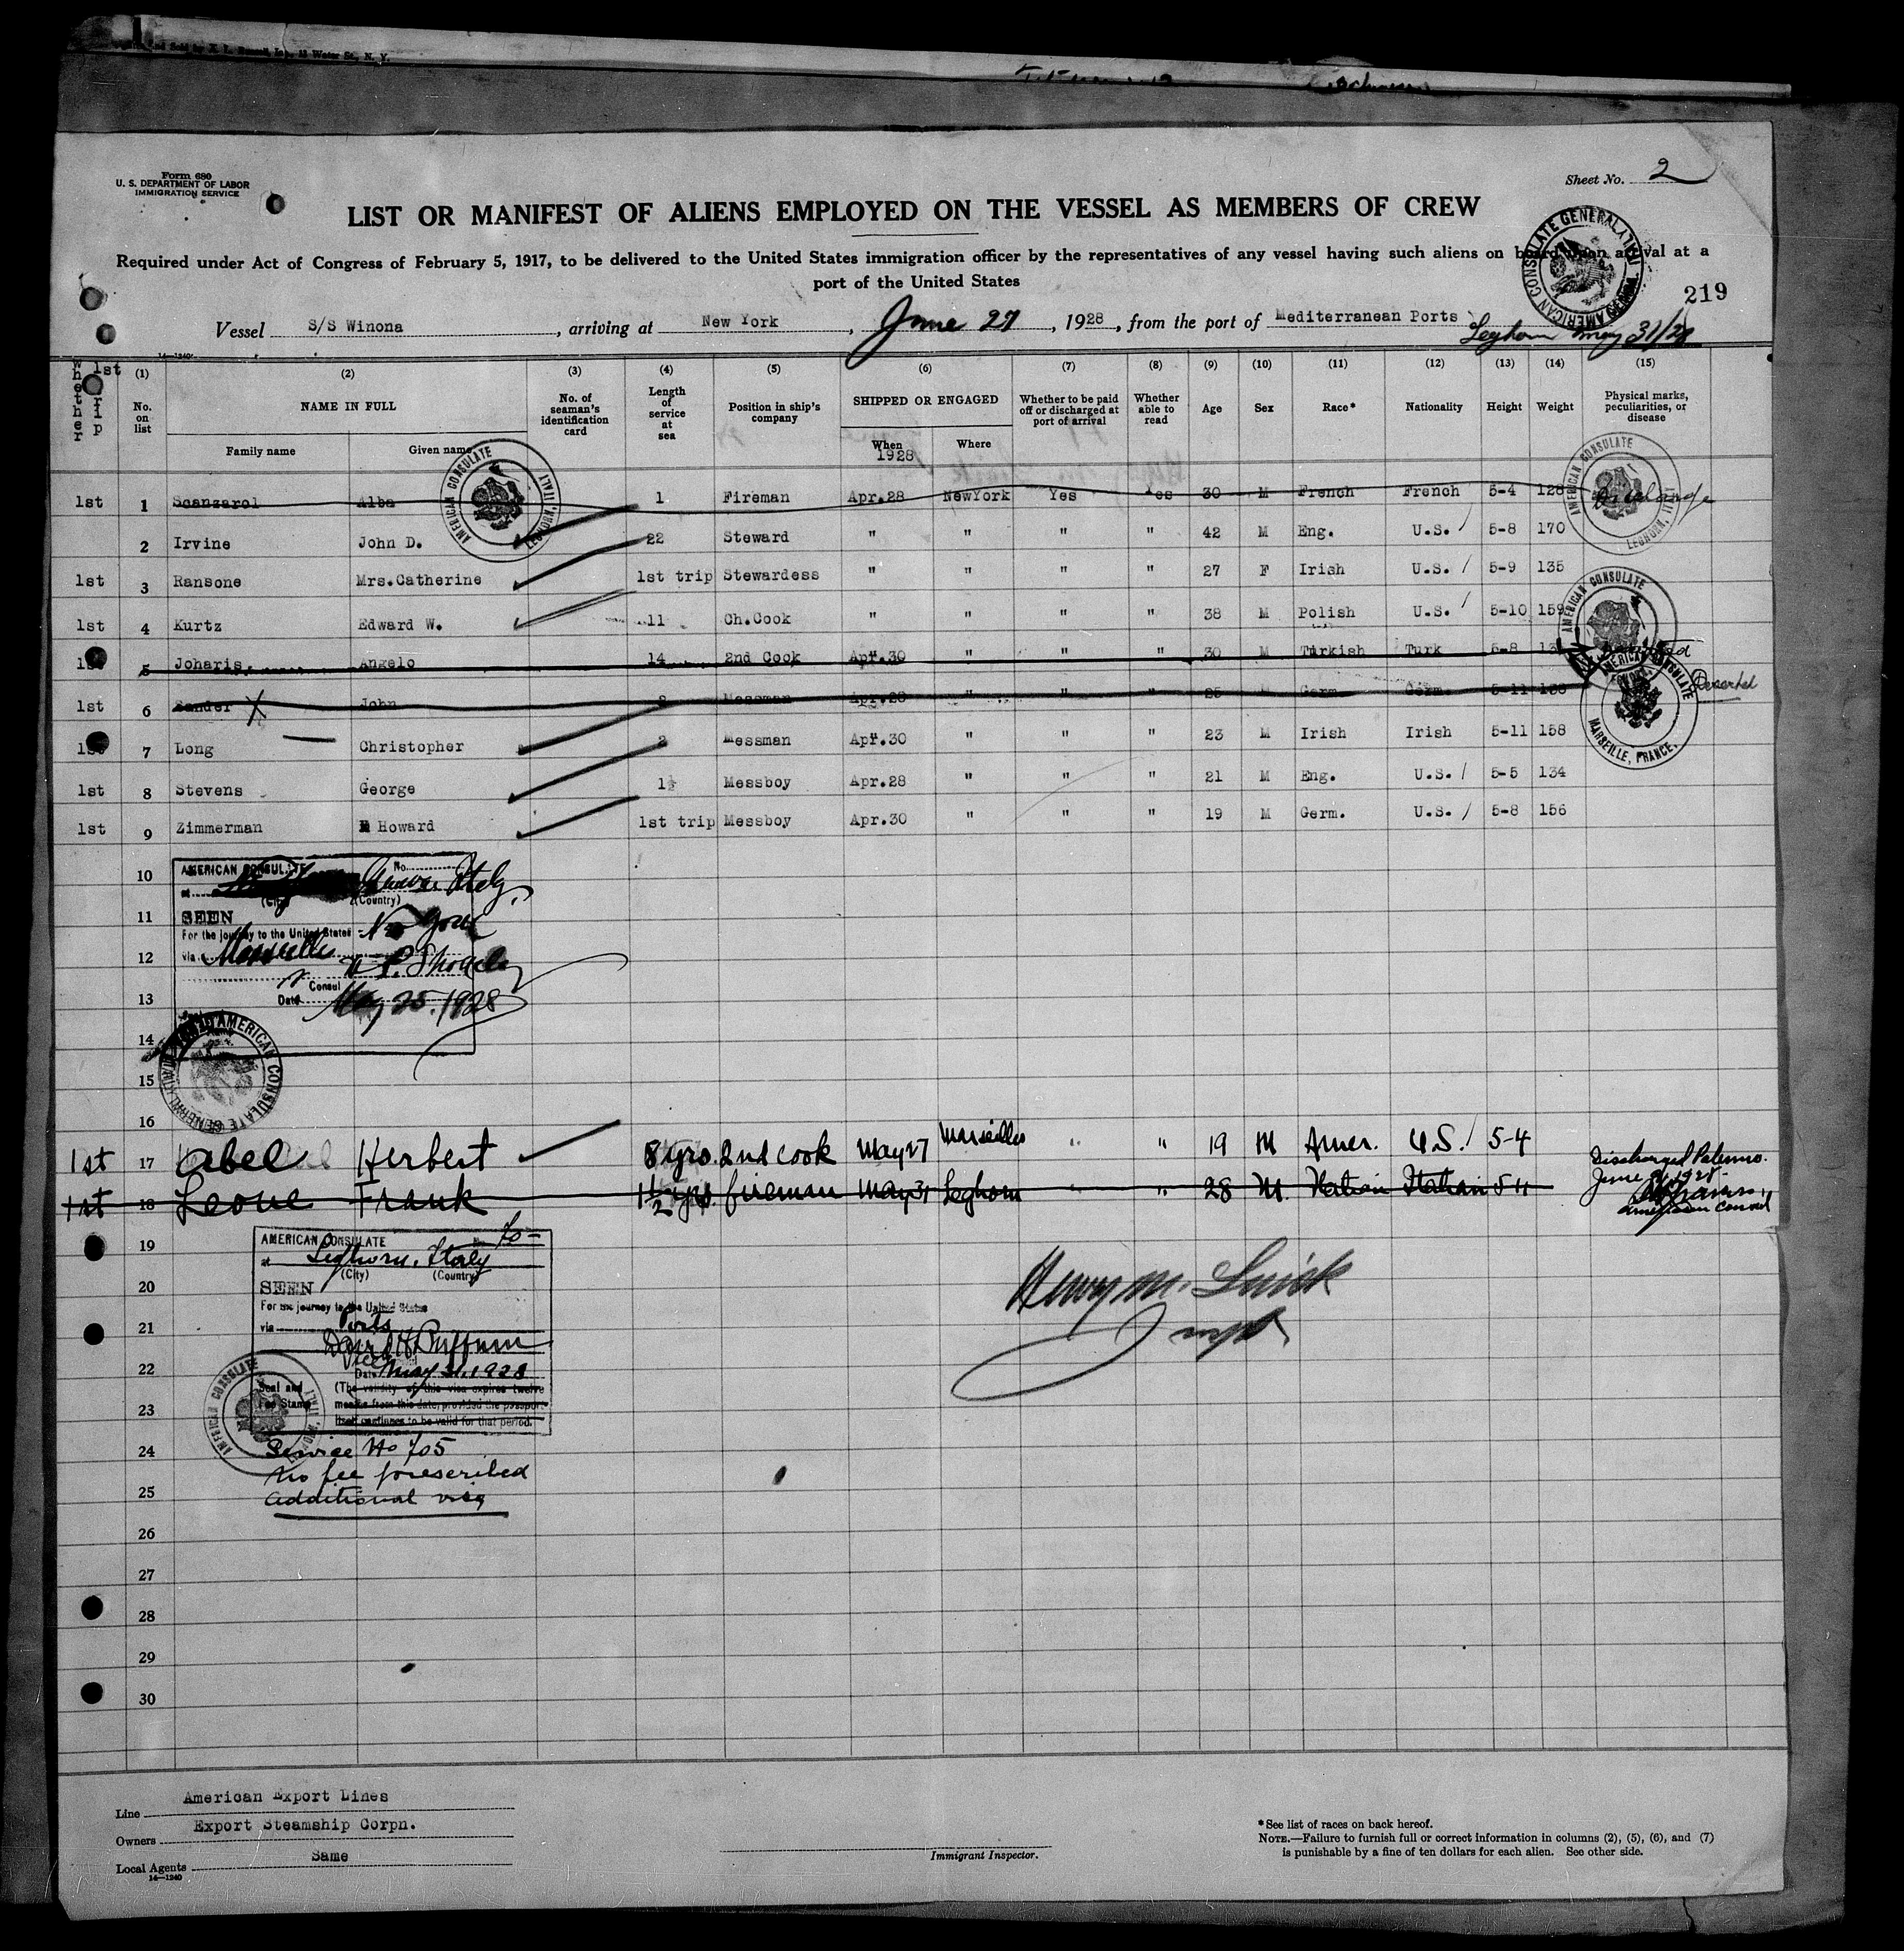 and Sold by
Inc., 13 Water St., N. Y.
Form 680
U. S. DEPARTMENT OF LABOR
IMMIGRATION SERVICE
Sheet No. 2
LIST OR MANIFEST OF ALIENS EMPLOYED ON THE VESSEL AS MEMBERS OF CREW
Required under Act of Congress of February 5, 1917, to be delivered to the United States immigration officer by the representatives of any vessel having such aliens on board upon arrival at a
port of the United States
AMERICAN CONSULATE GENERAL
219
Vessel S/S Winona, arriving at New York, June 27, 1928, from the port of Mediterranean Ports
Leghorn May 31/28
14—1240
Whether 1st Trip
(1) (2) (3) (4) (5) (6) (7) (8) (9) (10) (11) (12) (13) (14) (15)
No. on list
NAME IN FULL
Family name
Given name
No. of seaman's identification card
Length of service at sea
Position in ship's company
SHIPPED OR ENGAGED
When 1928
Where
Whether to be paid off or discharged at port of arrival
Whether able to read
Age
Sex
Race*
Nationality
Height
Weight
Physical marks, peculiarities, or disease
AMERICAN CONSULATE LEGHORN, ITALY
AMERICAN CONSULATE LEGHORN, ITALY
1st 1 Scanzarol Alba 1 Fireman Apr.28 NewYork Yes Yes 30 M French French 5-4 128
2 Irvine John D. 22 Steward " " " " 42 M Eng. U.S. 5-8 170
1st 3 Ransone Mrs.Catherine 1st trip Stewardess " " " " 27 F Irish U.S. 5-9 135
1st 4 Kurtz Edward W. 11 Ch.Cook " " " " 38 M Polish U.S. 5-10 159
AMERICAN CONSULATE
1st 5 Joharis Angelo 14 2nd Cook Apr.30 " " " 30 M Turkish Turk 5-8
1st 6 Sander X John 2 Messman Apr.28 " " " 25 M Germ. Germ. 5-11 158 Deserted
AMERICAN CONSULATE MARSEILLE, FRANCE.
1st 7 Long Christopher 2 Messman Apr.30 " " " 23 M Irish Irish 5-11 158
1st 8 Stevens George 1½ Messboy Apr.28 " " " 21 M Eng. U.S. 5-5 134
1st 9 Zimmerman Howard 1st trip Messboy Apr.30 " " " 19 M Germ. U.S. 5-8 156
10
AMERICAN CONSULATE No.
at Genoa Italy,
(City) (Country)
11
SEEN
For the journey to the United States
No fee
12
via Marseille
Consul
13
Date May 25, 1928
14
AMERICAN CONSULATE GENERAL
15
16
1st 17 Abel Herbert 8 yrs. 2nd cook May 27 Marseilles " " 19 M Amer. U.S. 5-4
1st 18 Leone Frank 1½ yrs. fireman May 31 Leghorn " " 28 M. Italian Italian 5 11
Discharged Palermo.
June 9, 1928
American Consul
19
AMERICAN CONSULATE
at Leghorn, Italy
(City) (Country)
20
SEEN
For the journey to the United States
21
via Ports
David H Buffum
Vice
22
Date May 31, 1928
Seal and Fee Stamp
(The validity of this visa expires twelve
months from this date, provided the passport
itself continues to be valid for that period.
AMERICAN CONSULATE LEGHORN, ITALY
23
24
Service No 705
No fee prescribed
25
Additional visa
Henry M.
26
27
28
29
30
Line American Export Lines
Owners Export Steamship Corpn.
Local Agents Same
14—1240
Immigrant Inspector.
*See list of races on back hereof.
NOTE.—Failure to furnish full or correct information in columns (2), (5), (6), and (7)
is punishable by a fine of ten dollars for each alien. See other side.